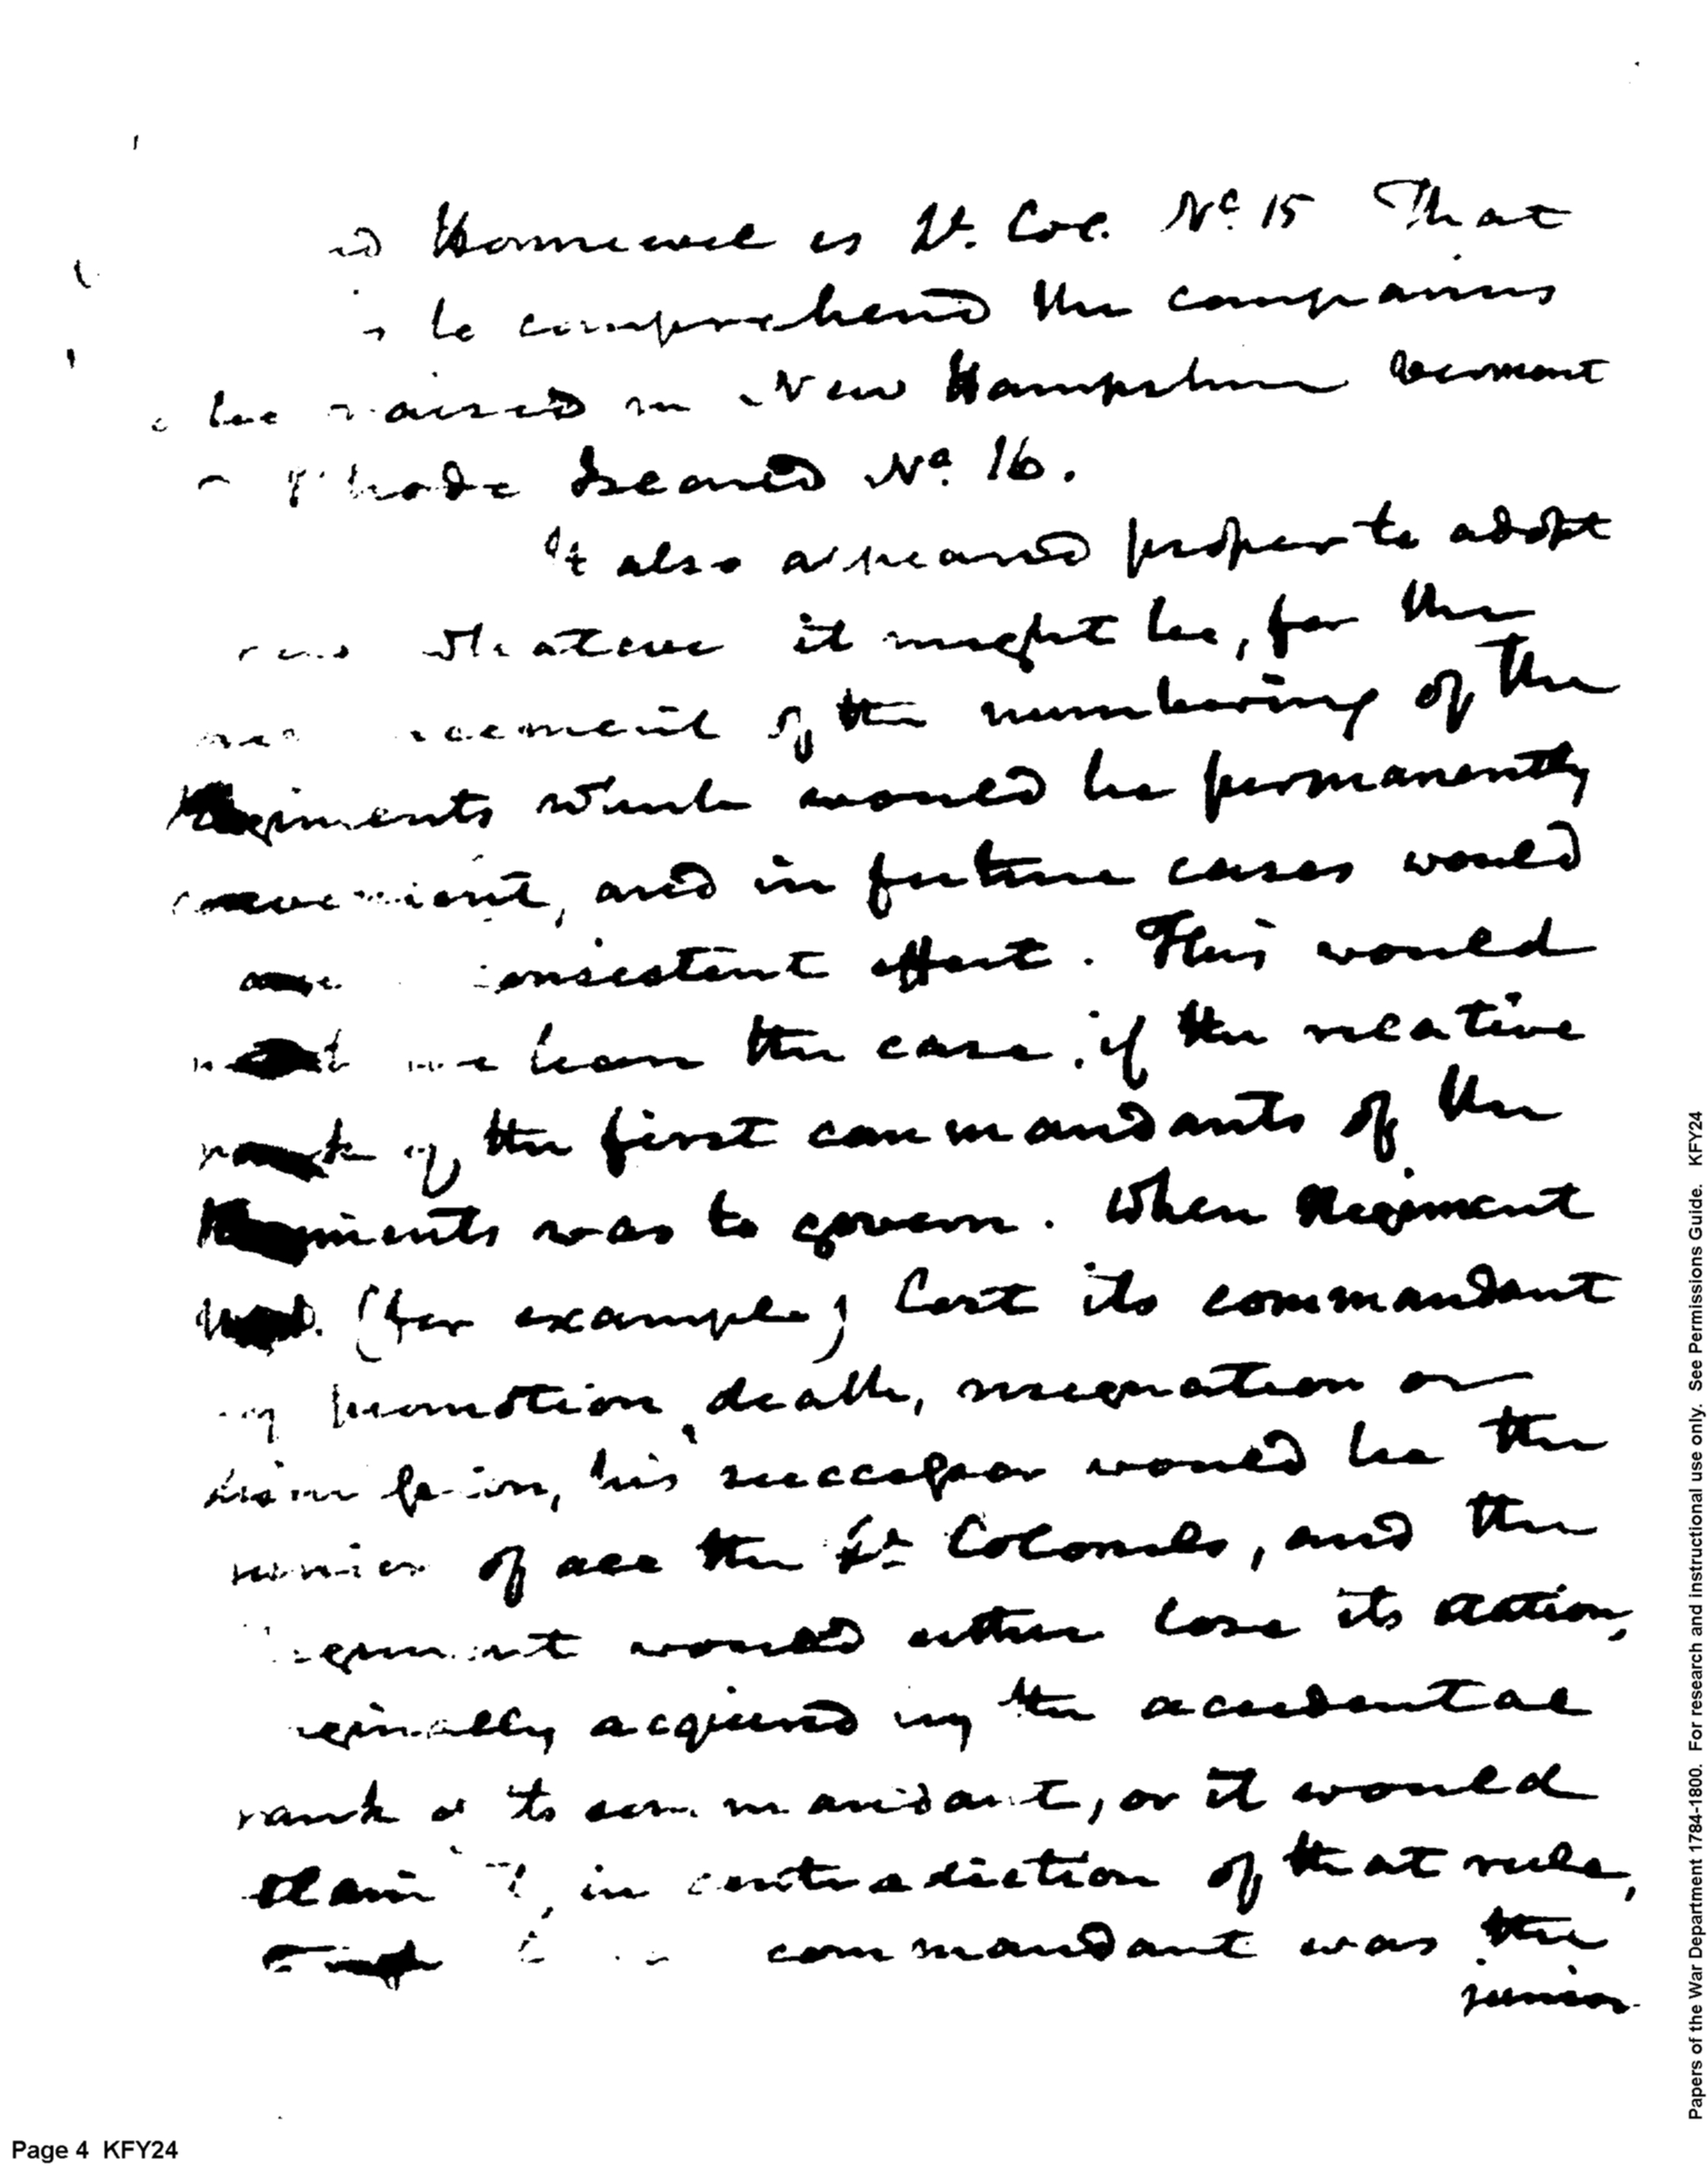 Hunniwell is Lt. Col. No. 15 That
is to comprehend the companies
to be raised in New Hampshire Vermont
& Rhode Island No. 16.
It also appeared proper to adopt
whatever it might be, for the
of the numbering of the
Regiments which would be permanently
convenient, and in future cases would
consistent effect. This would
not have been the case, if the relative
rank of the first commandants of the
Regiments was to govern. When Regiment
(for example) lost its commandant
by promotion, death, resignation or
dismission, his successor would be the
junior of all the Lt Colonels, and the
Regiment would either lose its station,
originally acquired by the accidental
rank of its commandant, or it would
retain it, in contradiction of that rule,
commandant was the
junior
Page 4 KFY24
Papers of the War Department 1784-1800. For research and instructional use only. See Permissions Guide. KFY24